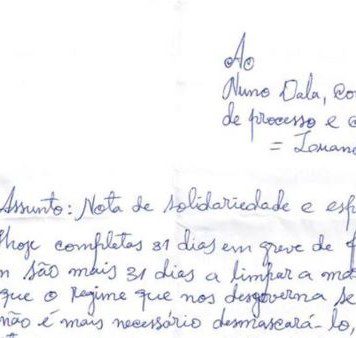 Ao
Nuno Dala, Co
de processo e
= Luanda
Assunto: Nota de solidariedade e esp
hoje completas 31 dias em greve de f
São mais 31 dias a limpar a
que o Regime que nos desgoverna se
não é mais necessário desmascará-lo,